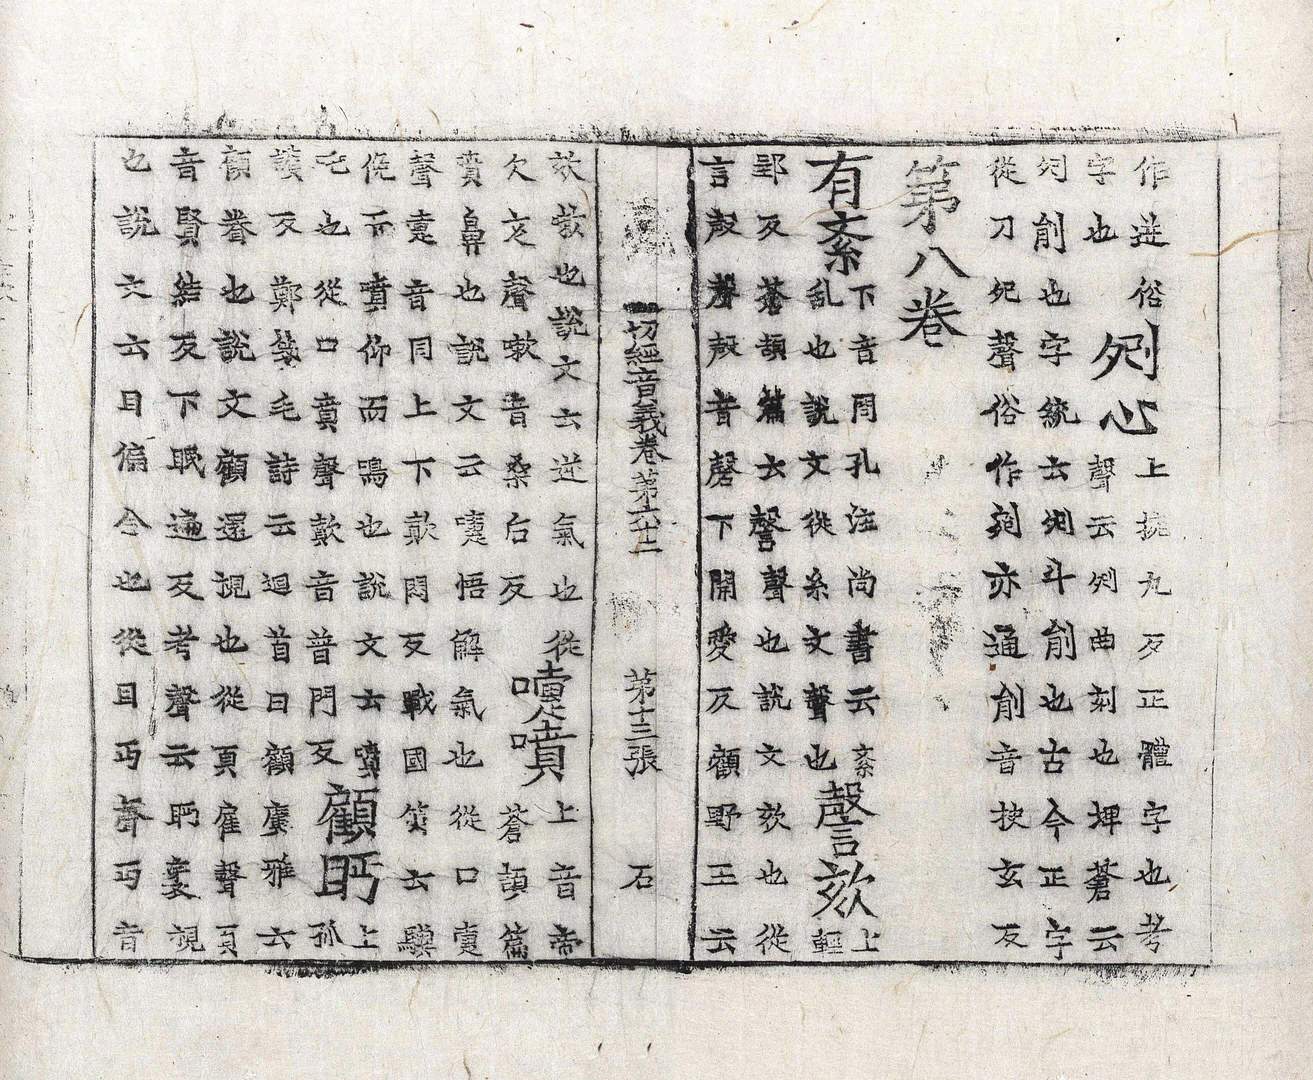 作逆俗
字也
剜心
上捥九反正體字也考
聲云剜曲刻也埤蒼云
剜削也字統云剜斗削也古今正字
從刀夗聲俗作剜亦通削音抉玄反
第八卷
有紊
下音問孔注尚書云紊
亂也說文從糸文聲也
謦欬
上
輕
郢反蒼頡篇云謦聲也說文欬也從
言殸聲殸音罄下開愛反顧野王云
一切經音義卷第六十二
第十三張
石
欬嗽也說文云逆氣也從
欠亥聲嗽音桑后反
嚏噴
上音帝
蒼頡篇
賁鼻也說文云嚏悟解氣也從口疐
聲疐音同上下歕悶反戰國策云驥
俛而噴仰而鳴也說文云噴
吒也從口賁聲歕音普門反
顧眄
上
孤
護反鄭箋毛詩云迴首曰顧廣雅云
顧眷也說文顧還視也從頁雇聲頁
音賢結反下眠遍反考聲云眄袤視
也說文云目偏合也從目丏聲丏音